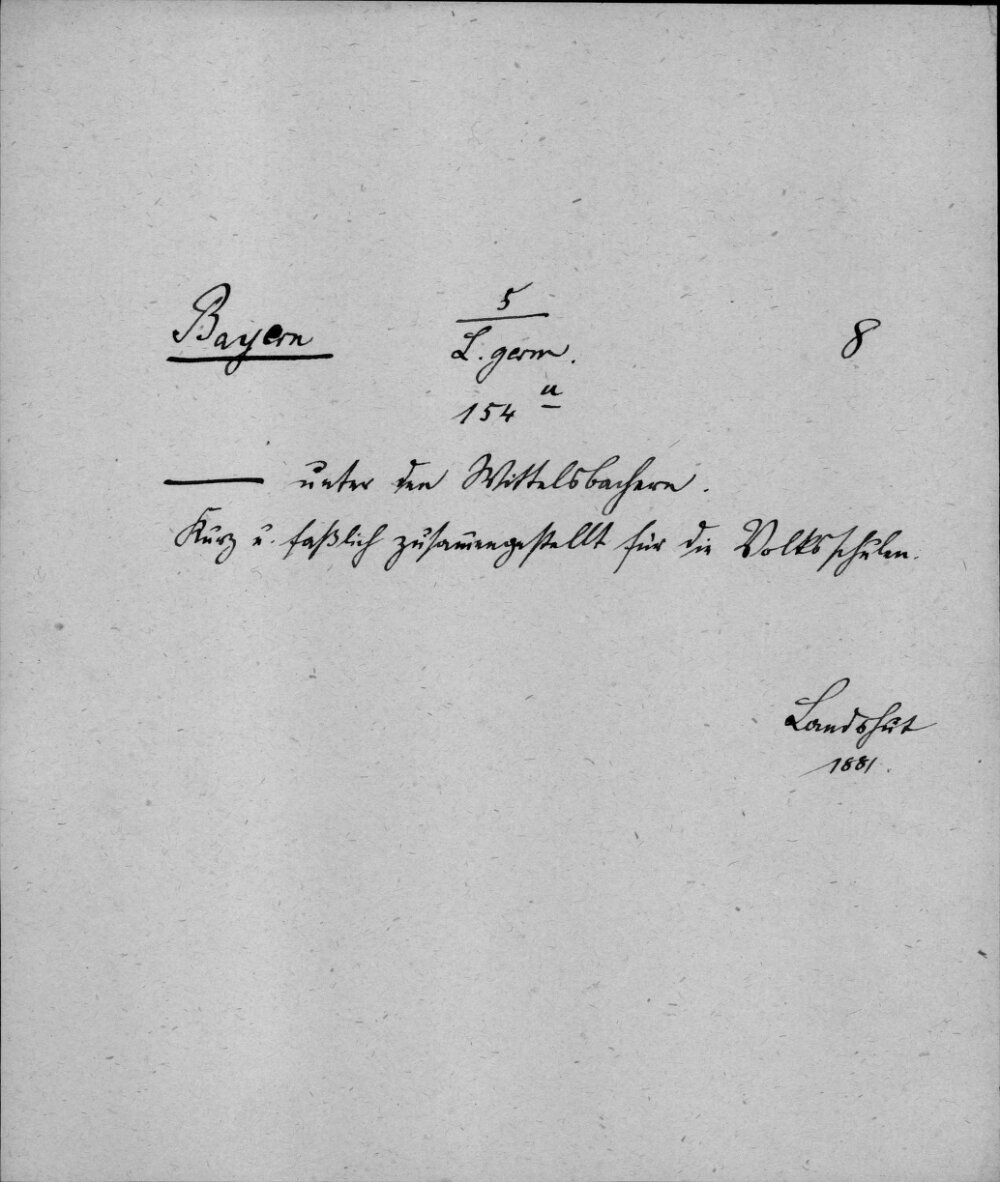 Bayern 5 8
L. germ.
154 u
— unter den Wittelsbachern.
Kurz u. faßlich zusammengestellt für die Volksschulen.
Landshut
1881.